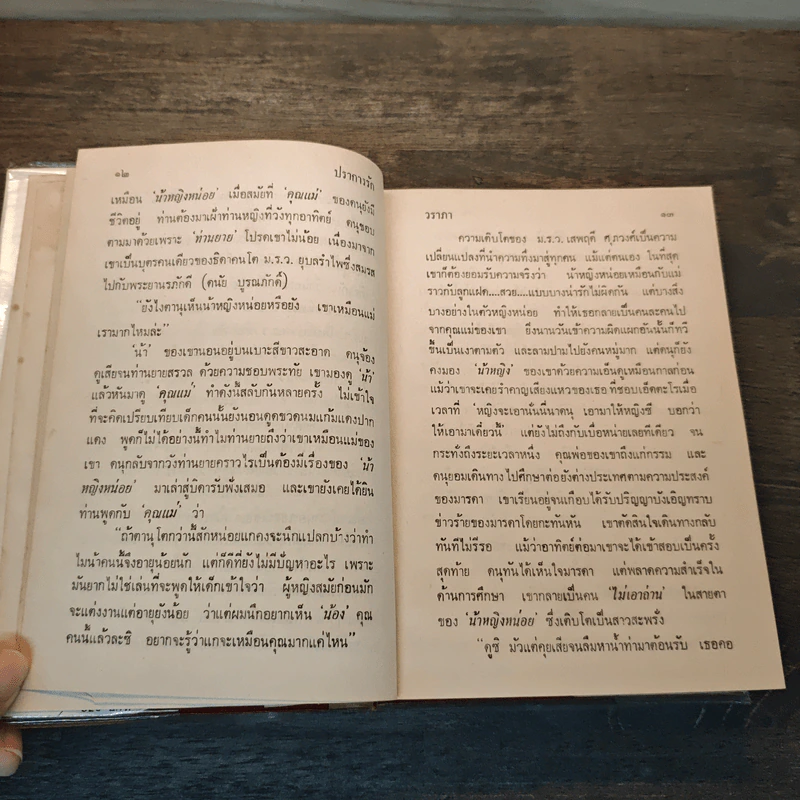 ๑๒ ปราการรัก
เหมือน 'น้าหญิงหน่อย' เมื่อสมัยที่ 'คุณแม่' ของดนุยังมี
ชีวิตอยู่ ท่านต้องมาเฝ้าท่านหญิงที่วังทุกอาทิตย์ ดนุชอบ
ตามมาด้วยเพราะ 'ท่านยาย' โปรดเขาไม่น้อย เนื่องมาจาก
เขาเป็นบุตรคนเดียวของธิดาคนโต ม.ร.ว. ยุบลรำไพซึ่งสมรส
ไปกับพระยานรภักดี (ดนัย บูรณภักดิ์)
"ยังไงดานุเห็นน้าหญิงหน่อยหรือยัง เขาเหมือนแม่
เรามากไหมล่ะ"
'น้า' ของเขานอนอยู่บนเบาะสีขาวสะอาด ดนุจ้อง
ดูเสียจนท่านยายสรวล ด้วยความชอบพระทัย เขามองดู 'น้า'
แล้วหันมาดู 'คุณแม่' ทำดังนี้สลับกันหลายครั้ง ไม่เข้าใจ
ที่จะคิดเปรียบเทียบเด็กคนนั้นยังนอนดูดขวดนมแก้มแดงปาก
แดง พูดก็ไม่ได้อย่างนี้ทำไมท่านยายถึงว่าเขาเหมือนแม่ของ
เขา ดนุกลับจากวังท่านยายคราวไรเป็นต้องมีเรื่องของ 'น้า
หญิงหน่อย' มาเล่าสู่บิดารับฟังเสมอ และเขายังเคยได้ยิน
ท่านพูดกับ 'คุณแม่' ว่า
"ถ้าดานุโตกว่านี้สักหน่อยแกคงจะนึกแปลกบ้างว่าทำ
ไมน้าคนนี้จึงอายุน้อยนัก แต่ก็ดีที่ยังไม่มีปัญหาอะไร เพราะ
มันยากไม่ใช่เล่นที่จะพูดให้เด็กเข้าใจว่า ผู้หญิงสมัยก่อนมัก
จะแต่งงานแต่อายุยังน้อย ว่าแต่ผมนึกอยากเห็น 'น้อง' คุณ
คนนี้แล้วละซิ อยากจะรู้ว่าแกจะเหมือนคุณมากแค่ไหน"
วราภา ๑๓
ความเติบโตของ ม.ร.ว. เสพฤดี ศุภวงศ์เป็นความ
เปลี่ยนแปลงที่นำความทึ่งมาสู่ทุกคน แม้แต่ตนเอง ในที่สุด
เขาก็ต้องยอมรับความจริงว่า น้าหญิงหน่อยเหมือนกับแม่
ราวกับลูกแฝด....สวย....แบบบางน่ารักไม่ผิดกัน แต่บางสิ่ง
บางอย่างในตัวหญิงหน่อย ทำให้เธอกลายเป็นคนละคนไป
จากคุณแม่ของเขา ยิ่งนานวันเข้าความผิดแผกอันนั้นก็ทวี
ขึ้นเป็นเงาตามตัว และลามปามไปยังคนหมู่มาก แต่ดนุก็ยัง
คงมอง 'น้าหญิง' ของเขาด้วยความเอ็นดูเหมือนกาลก่อน
แม้ว่าเขาจะเคยรำคาญเสียงแหวของเธอที่ชอบเอ็ดตะโรเมื่อ
เวลาที่ 'หญิงจะเอานั่นนี่นาดนุ เอามาให้หญิงซี บอกว่า
ให้เอามาเดี๋ยวนี้' แต่ยังไม่ถึงกับเบื่อหน่ายเลยทีเดียว จน
กระทั่งถึงระยะเวลาหนึ่ง คุณพ่อของเขาถึงแก่กรรม และ
ดนุยอมเดินทางไปศึกษาต่อยังต่างประเทศตามความประสงค์
ของมารดา เขาเรียนอยู่จนเกือบได้รับปริญญาบังเอิญทราบ
ข่าวร้ายของมารดาโดยกะทันหัน เขาตัดสินใจเดินทางกลับ
ทันทีไม่รีรอ แม้ว่าอาทิตย์ต่อมาเขาจะได้เข้าสอบเป็นครั้ง
สุดท้าย ดนุทันได้เห็นใจมารดา แต่พลาดความสำเร็จใน
ด้านการศึกษา เขากลายเป็นคน 'ไม่เอาถ่าน' ในสายตา
ของ 'น้าหญิงหน่อย' ซึ่งเติบโตเป็นสาวสะพรั่ง
"ดูซิ มัวแต่คุยเสียจนลืมหาน้ำท่ามาต้อนรับ เธอคอ